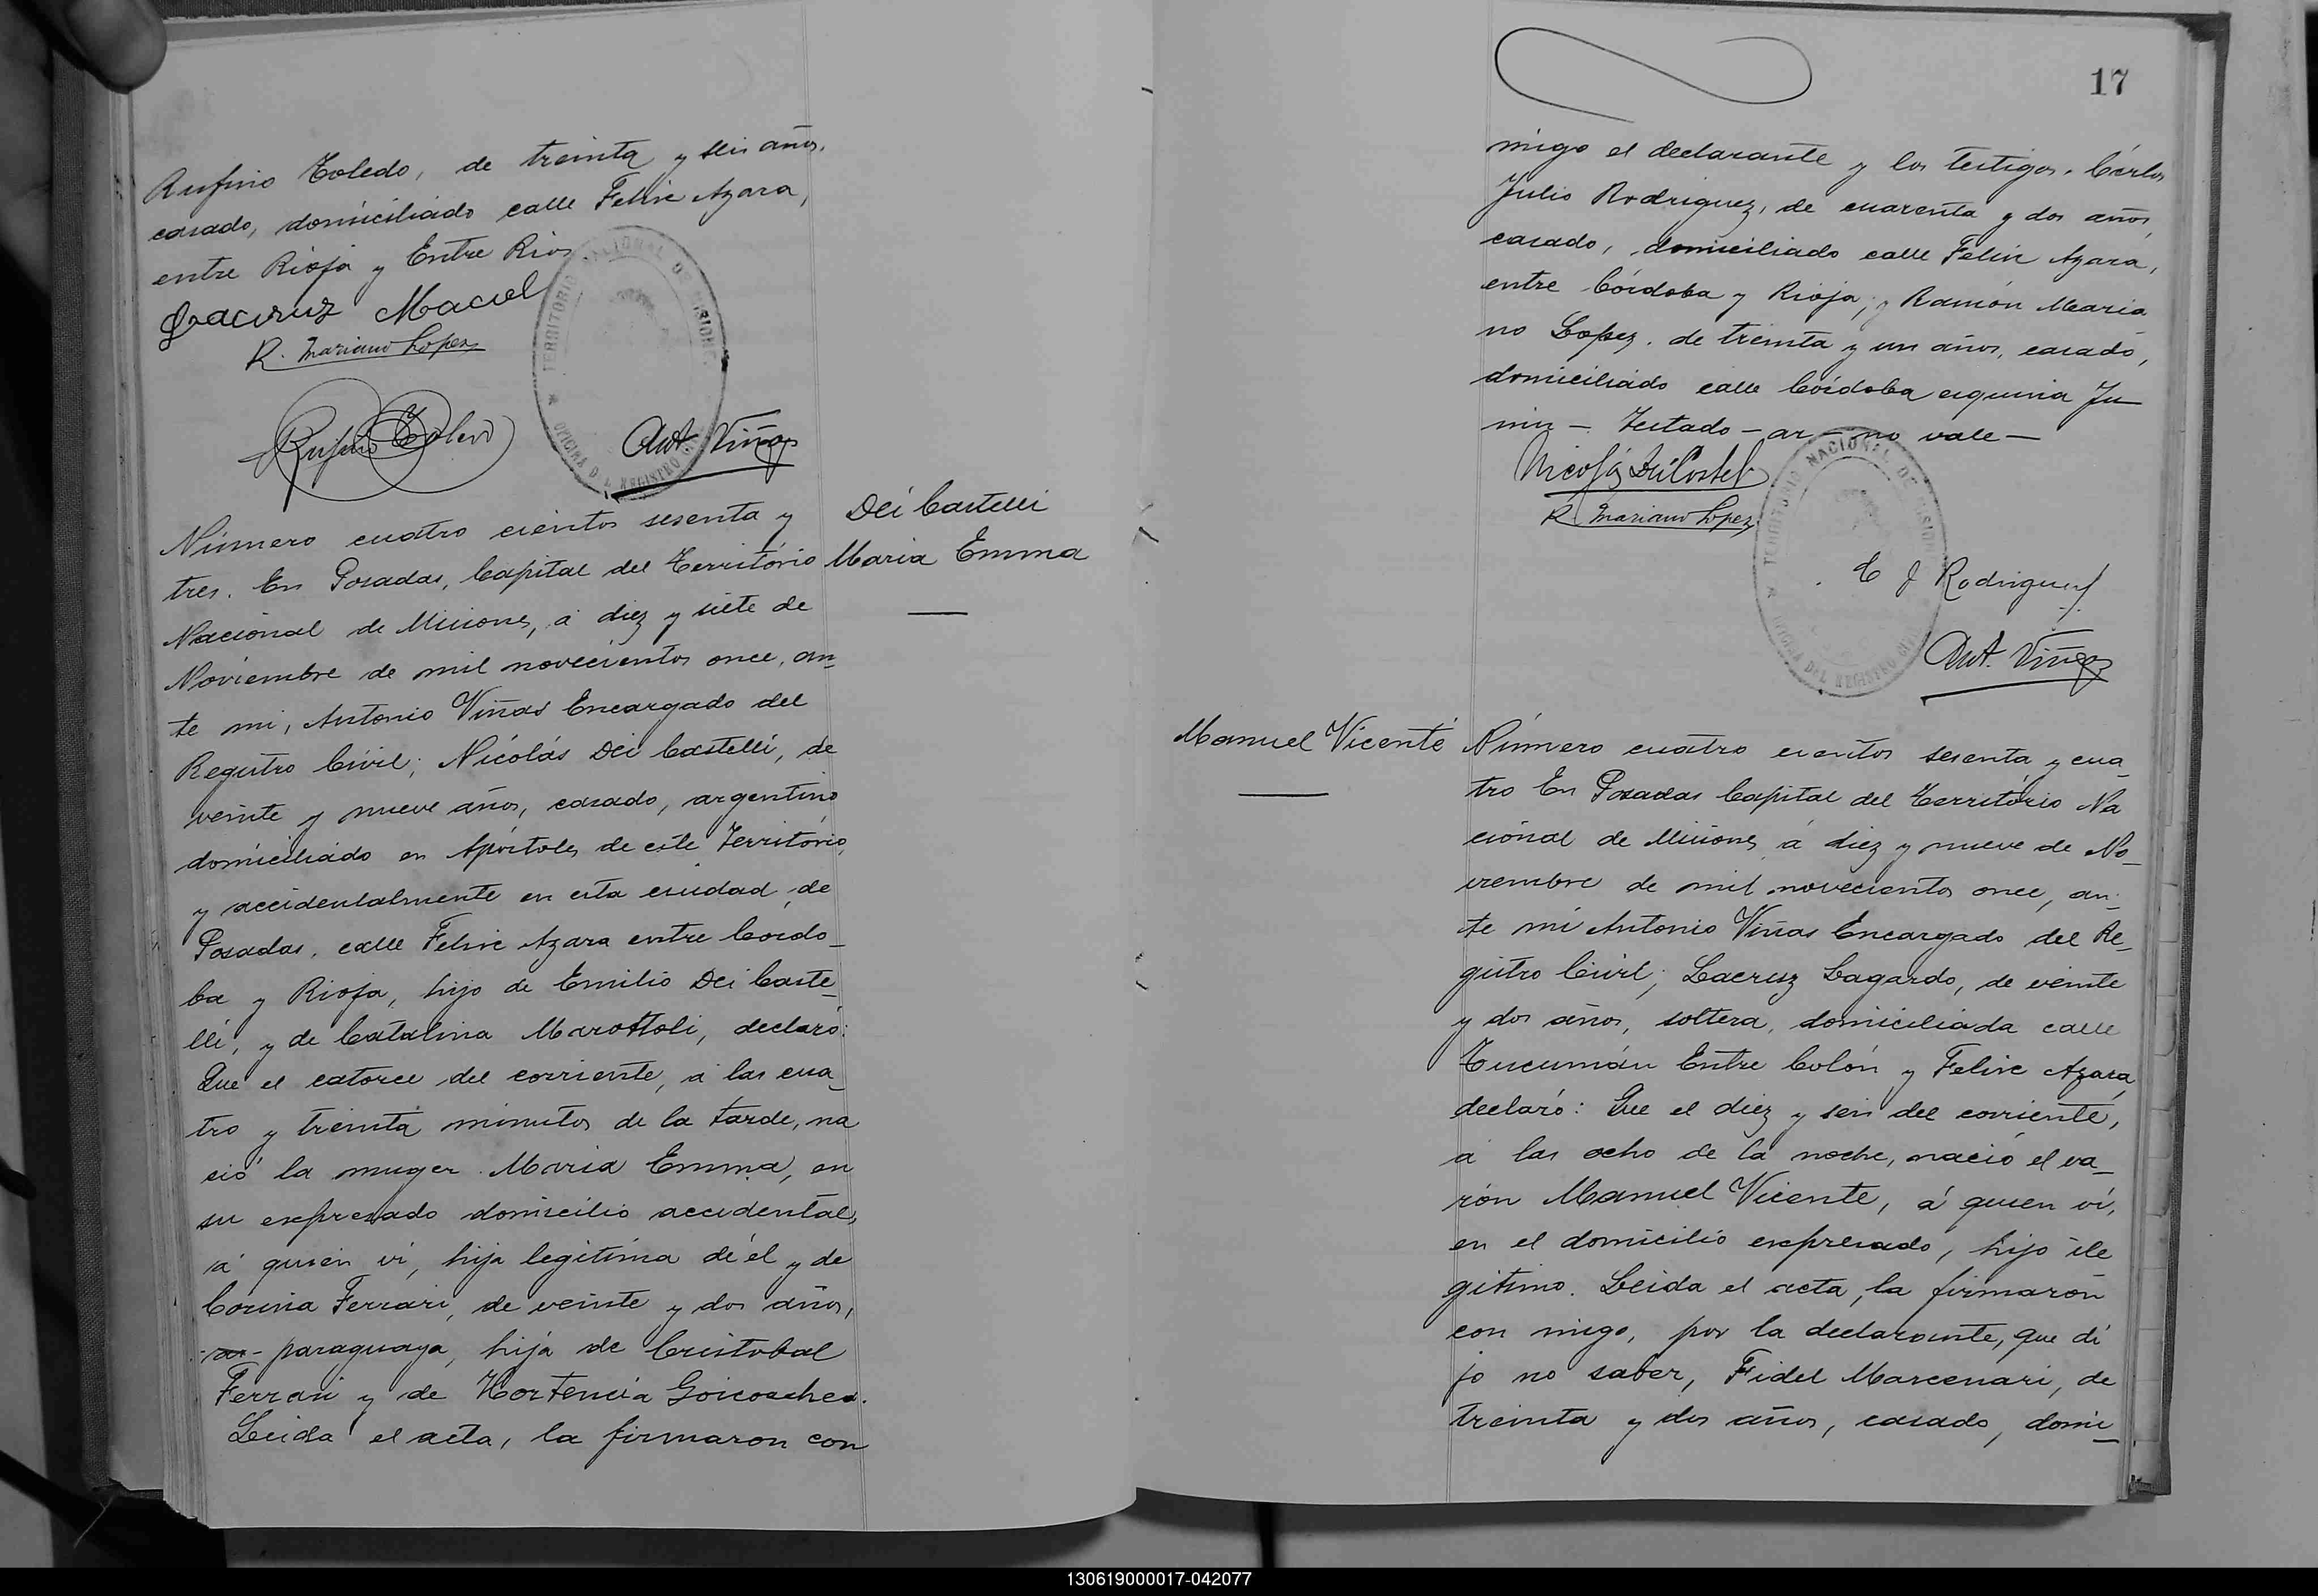 Rufino Toledo, de treinta y seis años,
casado, domiciliado calle Felix Azara,
entre Rioja y Entre Rios
Lacruz Maciel
R. Mariano Lopez
Rufino Toledo
TERRITORIO NACIONAL DE MISIONES
OFICINA DEL REGISTRO CIVIL
Ant. Viñas
Número cuatro cientos sesenta y
tres. En Posadas, Capital del Territorio
Nacional de Misiones, á diez y siete de
Noviembre de mil novecientos once, an_
te mi, Antonio Viñas Encargado del
Registro Civil; Nicolás Dei Castelli, de
veinte y nueve años, casado, argentino
domiciliado en Apóstoles de este Territorio,
y accidentalmente en esta ciudad de
Posadas, calle Felix Azara entre Córdo_
ba y Rioja, hijo de Emilio Dei Caste_
lli, y de Catalina Marottoli, declaró:
Que el catorce del corriente, á las cua_
tro y treinta minutos de la tarde, na
ció la muger Maria Emma, en
su expresado domicilio accidental,
á quien vi, hija legítima de él y de
Corina Ferrari, de veinte y dos años,
-ar- paraguaya, hija de Cristobal
Ferrari y de Hortencia Goicoechea.
Leida el acta, la firmaron con
Dei Castelli
Maria Emma
17
migo el declarante y los testigos. Cárlos
Julio Rodriguez, de cuarenta y dos años,
casado, domiciliado calle Felix Azara,
entre Córdoba y Rioja, y Ramón Maria
no Lopez, de treinta y un años, casado,
domiciliado calle Córdoba esquina Ju_
nin — Testado — ar — no vale —
Nicolás Dei Castelli
R. Mariano Lopez
TERRITORIO NACIONAL DE MISIONES
OFICINA DEL REGISTRO CIVIL
C J Rodriguez
Ant. Viñas
Manuel Vicente
Número cuatro cientos sesenta y cua_
tro En Posadas Capital del Territorio Na
cional de Misiones á diez y nueve de No_
viembre de mil novecientos once, an_
te mi Antonio Viñas Encargado del Re_
gistro Civil; Lacruz Lagardo, de veinte
y dos años, soltera, domiciliada calle
Tucumán Entre Colón y Felix Azara,
declaró: Que el diez y seis del corriente,
á las ocho de la noche, nació el va_
rón Manuel Vicente, á quien vi,
en el domicilio expresado, hijo ile
gitimo. Leida el acta, la firmaron
con migo, por la declarante, que di
jo no saber, Fidel Marcenari, de
treinta y dos años, casado, domi_
130619000017-042077